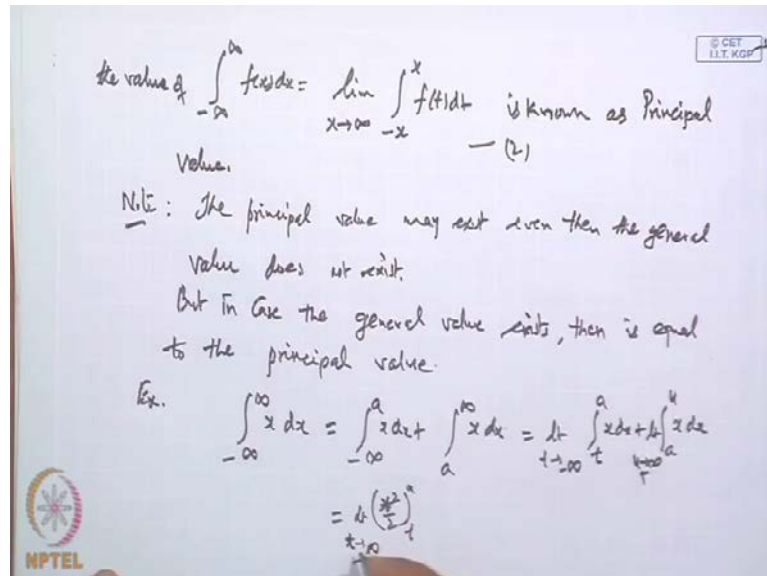 © CET
I.I.T. KGP
the value of ∫_{-∞}^{∞} f(x)dx = lim_{x→∞} ∫_{-x}^{x} f(t)dt is known as Principal
— (2)
Value.
Note : The principal value may exist even then the general
value does not exist.
But in Case the general value exists, then is equal
to the principal value.
Ex. ∫_{-∞}^{∞} x dx = ∫_{-∞}^{a} x dx + ∫_{a}^{∞} x dx = lt_{t→-∞} ∫_{t}^{a} x dx + lt_{u→∞} ∫_{a}^{u} x dx
= lt_{t→∞} (x²/2)_{t}^{a}
NPTEL